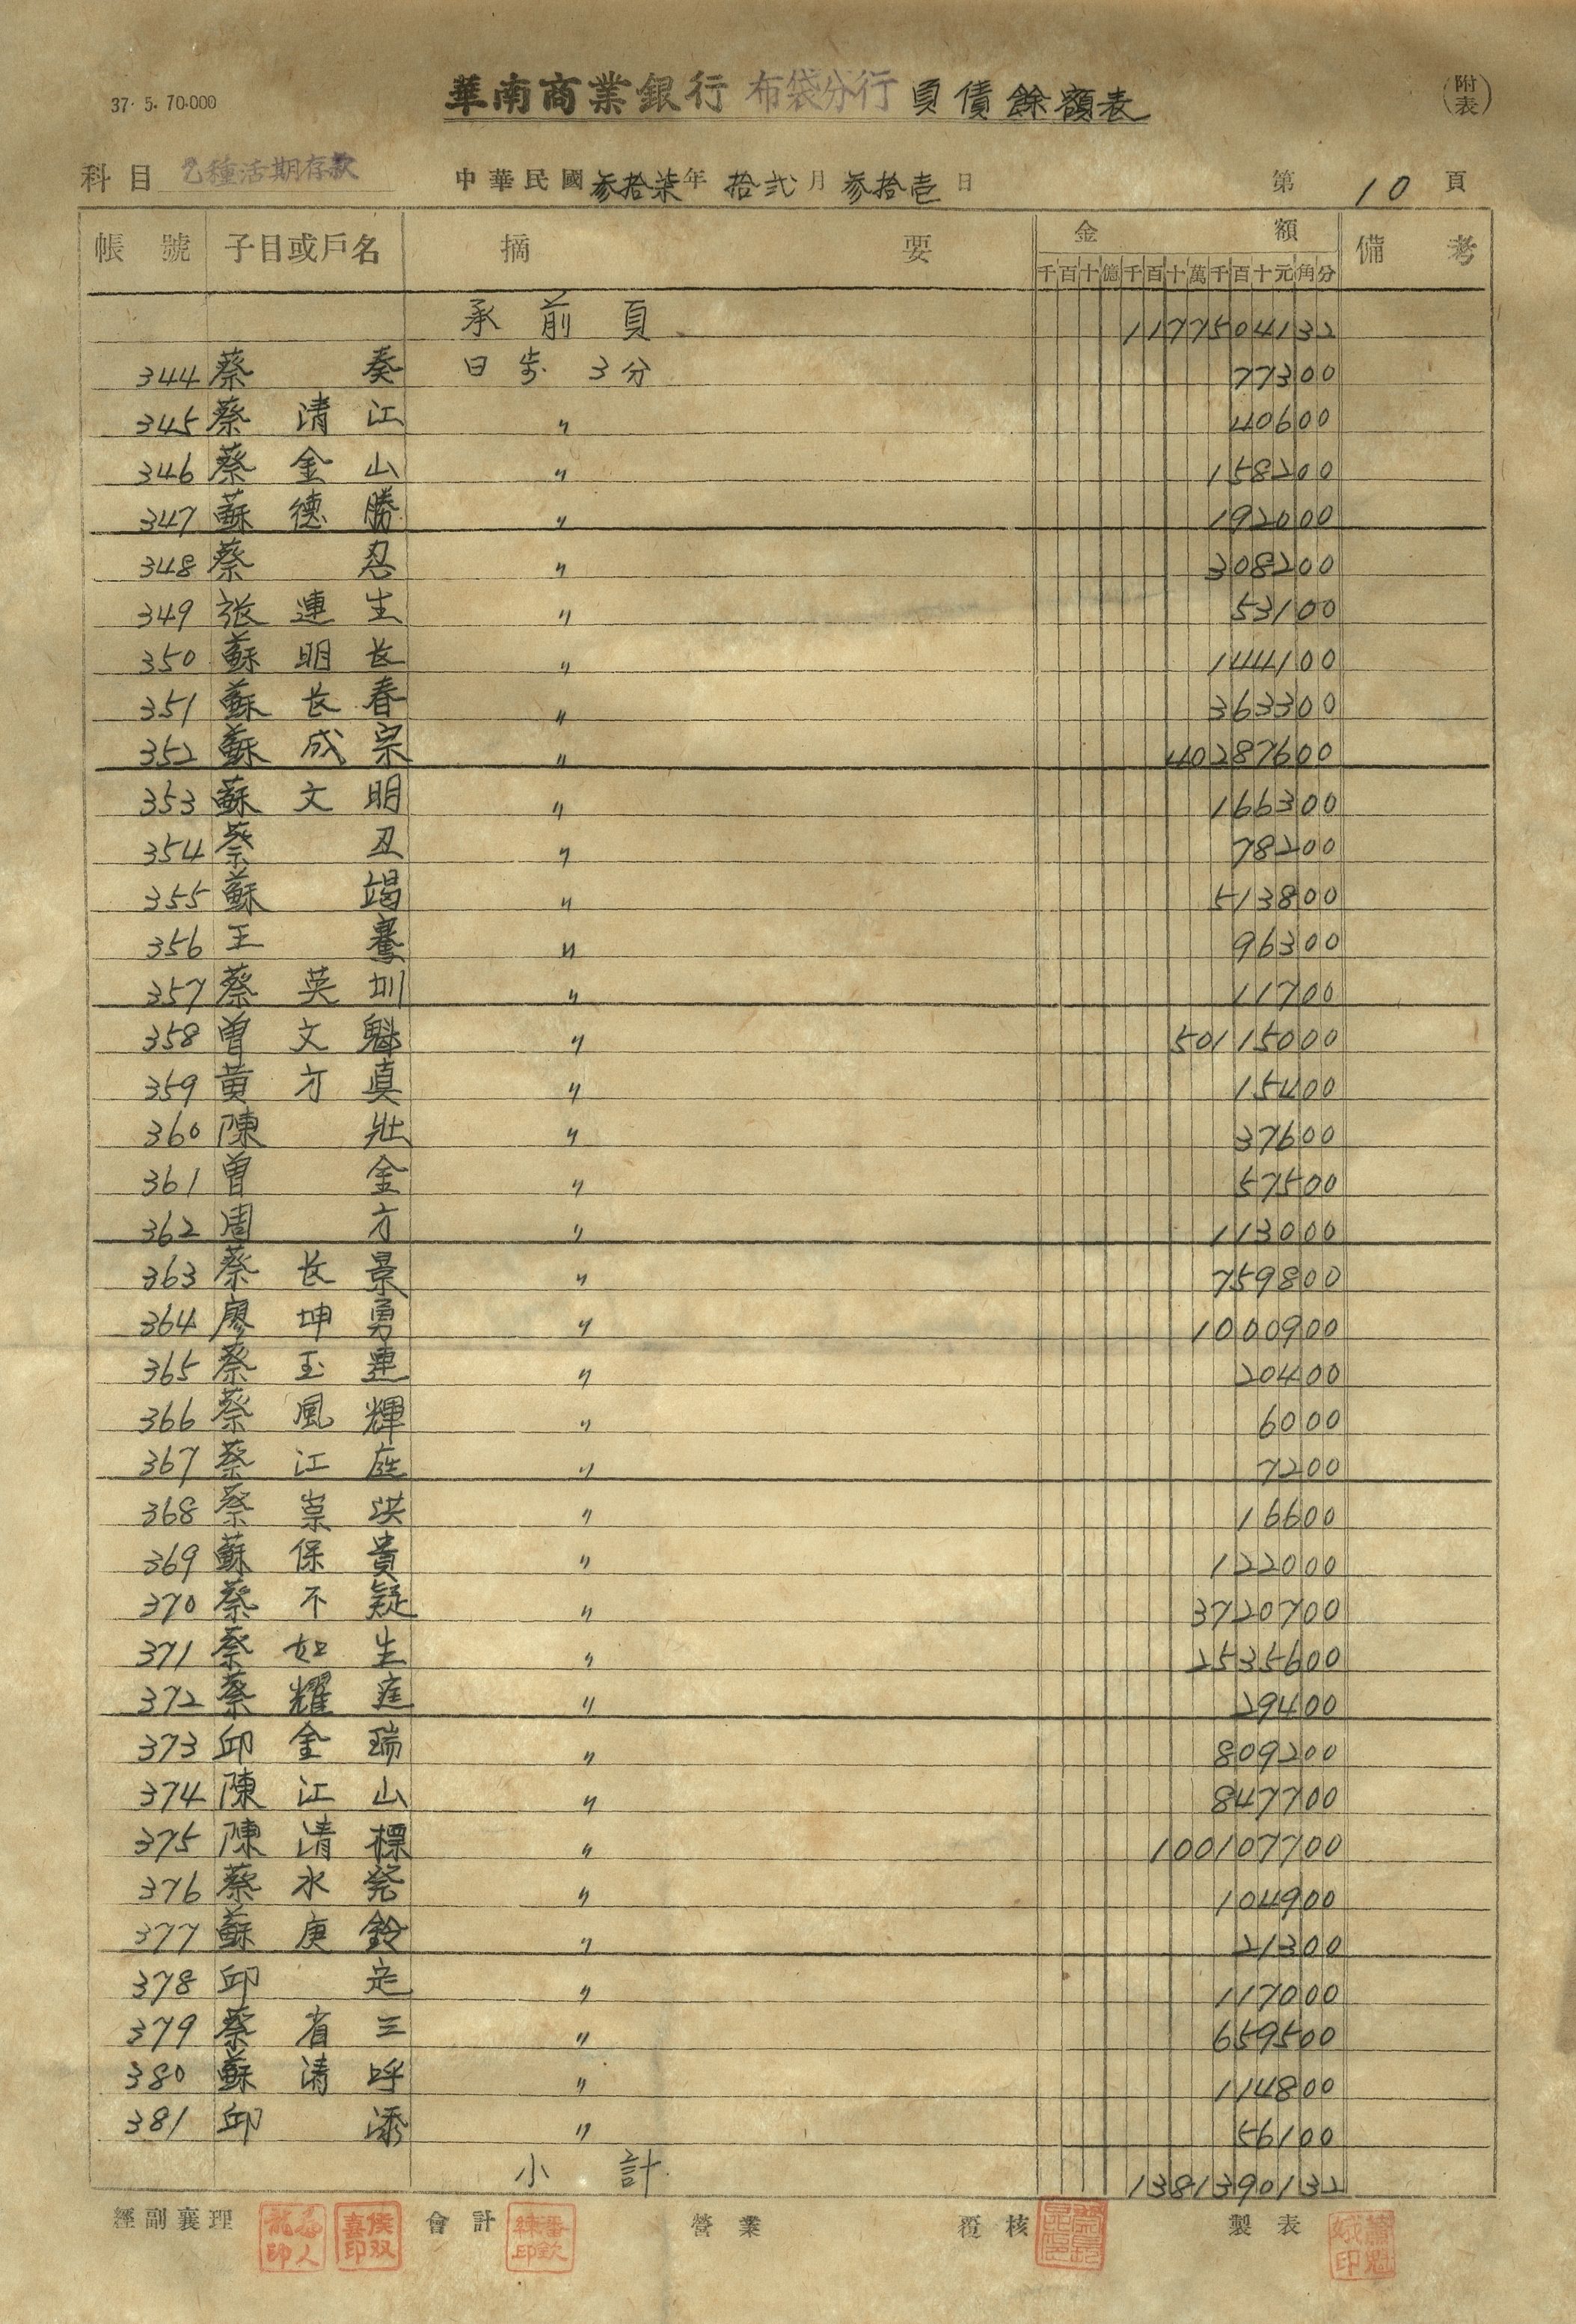 37. 5. 70.000
華南商業銀行 布袋分行 負債餘額表
(附表)
科目 乙種活期存款 中華民國叁拾柒年 拾弍月 叁拾壱日 第 10 頁
帳號 子目或戶名 摘要 金額 備考
千百十億千百十萬千百十元角分
承前頁 1177504132
344 蔡奏 日歩 3分 77300
345 蔡清江 〃 40600
346 蔡金山 〃 158200
347 蘇德勝 〃 192000
348 蔡忍 〃 308200
349 張連生 〃 53100
350 蘇明长 〃 144100
351 蘇长春 〃 363300
352 蘇成宗 〃 40287600
353 蘇文明 〃 166300
354 蔡丑 〃 78200
355 蘇竭 〃 513800
356 王騫 〃 96300
357 蔡英圳 〃 11700
358 曽文魁 〃 50115000
359 黃才真 〃 15400
360 陳壯 〃 37600
361 曽金 〃 57500
362 周才 〃 113000
363 蔡长景 〃 759800
364 廖坤勇 〃 1000900
365 蔡玉連 〃 20400
366 蔡風輝 〃 6000
367 蔡江 〃 7200
368 蔡崇洪 〃 16600
369 蘇保貴 〃 122000
370 蔡不疑 〃 3720700
371 蔡如生 〃 2535600
372 蔡耀庭 〃 29400
373 邱金瑞 〃 809200
374 陳江山 〃 847700
375 陳清標 〃 100107700
376 蔡水発 〃 104900
377 蘇庚鈴 〃 21300
378 邱定 〃 117000
379 蔡省三 〃 659500
380 蘇清呼 〃 114800
381 邱添 〃 56100
小計 1381390132
經副襄理 會計 營業 覆核 製表